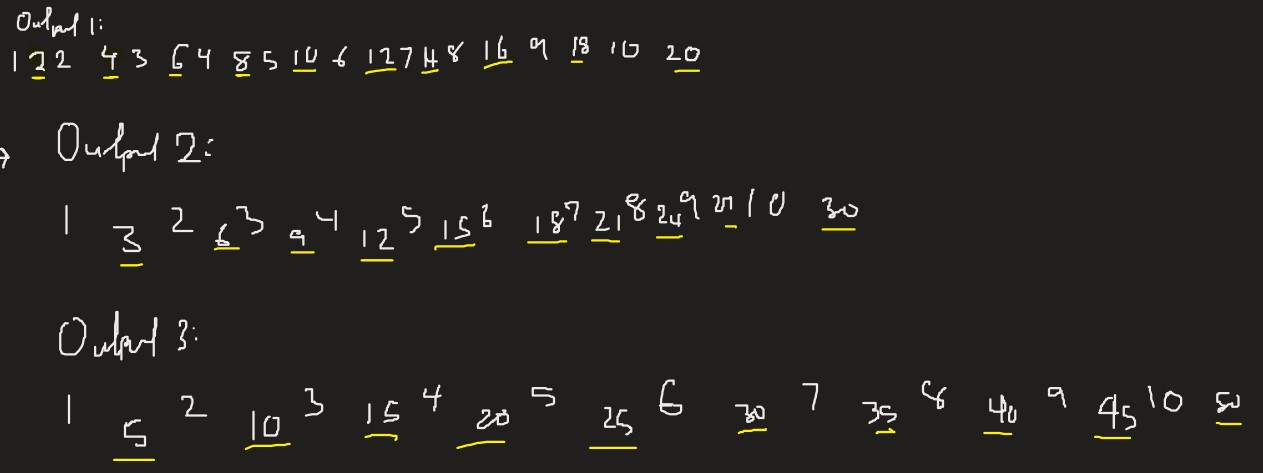 Output 1:
1 2 2 4 3 6 4 8 5 10 6 12 7 14 8 16 9 18 10 20
Output 2:
1 3 2 6 3 9 4 12 5 15 6 18 7 21 8 24 9 27 10 30
Output 3:
1 5 2 10 3 15 4 20 5 25 6 30 7 35 8 40 9 45 10 50